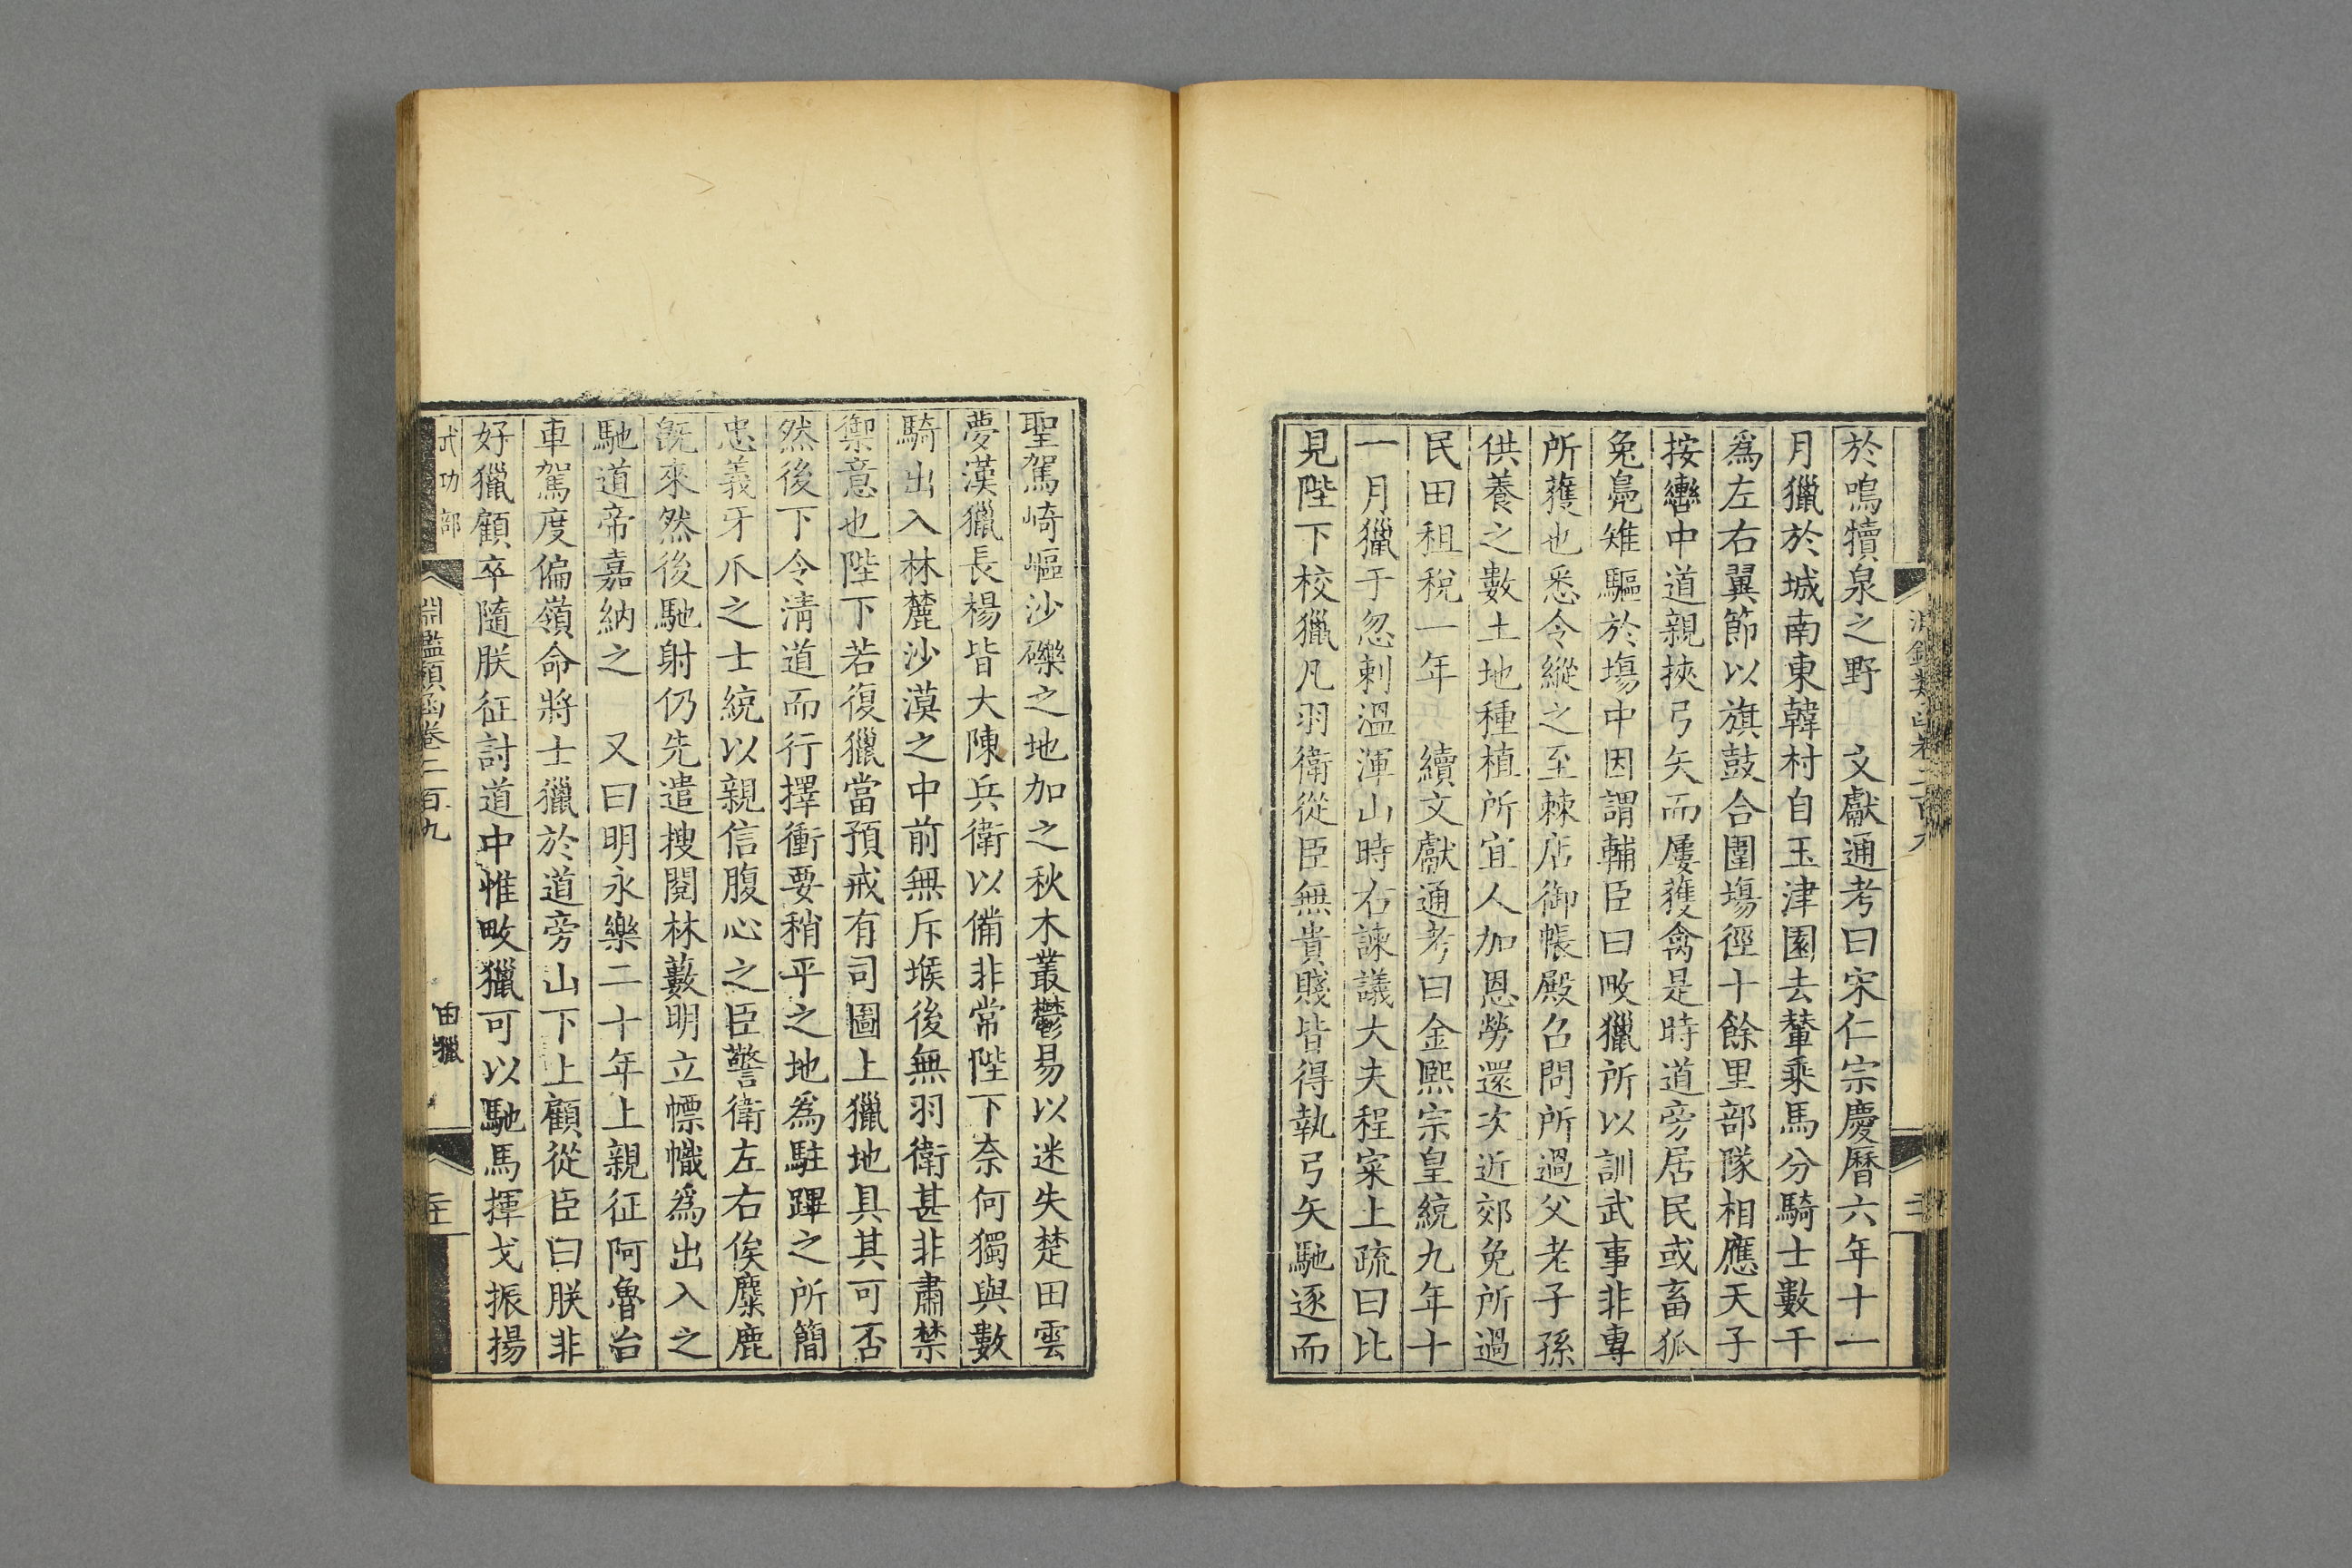 於鳴犢泉之野　文獻通考曰宋仁宗慶曆六年十一
月獵於城南東韓村自玉津園去輦乘馬分騎士數千
爲左右翼節以旗鼓合圍場徑十餘里部隊相應天子
按轡中道親挾弓矢而屢獲禽是時道旁居民或畜狐
兔鳧雉驅於場中因謂輔臣曰畋獵所以訓武事非專
所獲也悉令縱之至棘店御帳殿召問所過父老子孫
供養之數土地種植所宜人加恩勞還次近郊免所過
民田租稅一年　續文獻通考曰金熙宗皇統九年十
一月獵于忽剌溫渾山時右諫議大夫程寀上疏曰比
見陛下校獵凡羽衛從臣無貴賤皆得執弓矢馳逐而
聖駕崎嶇沙礫之地加之秋木叢鬱易以迷失楚田雲
夢漢獵長楊皆大陳兵衛以備非常陛下奈何獨與數
騎出入林麓沙漠之中前無斥堠後無羽衛甚非肅禁
禦意也陛下若復獵當預戒有司圖上獵地具其可否
然後下令清道而行擇衝要稍平之地爲駐蹕之所簡
忠義牙爪之士統以親信腹心之臣警衛左右俟麋鹿
旣來然後馳射仍先遣搜閱林藪明立幖幟爲出入之
馳道帝嘉納之　又曰明永樂二十年上親征阿魯台
車駕度偏嶺命將士獵於道旁山下上顧從臣曰朕非
好獵顧卒隨朕征討道中惟畋獵可以馳馬揮戈振揚
武功部
淵鑑類函卷二百九
田獵